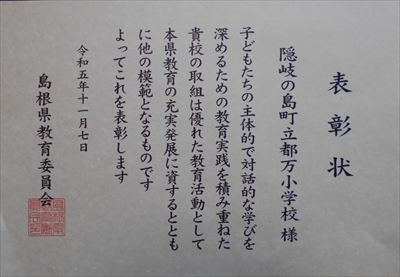 表彰状
隠岐の島町立都万小学校 様
子どもたちの主体的で対話的な学びを
深めるための教育実践を積み重ねた
貴校の取組は優れた教育活動として
本県教育の充実発展に資するととも
に他の模範となるものです
よってこれを表彰します
令和五年十一月七日
島根県教育委員会